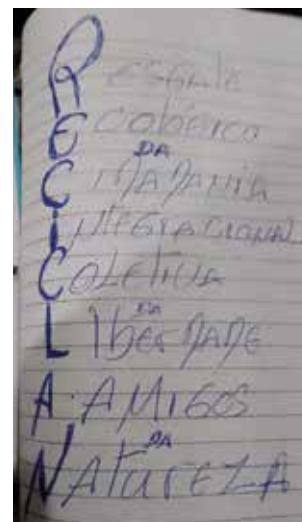 RESGATE
ECOLÓGICO
DA
CIDADANIA
INTEGRACIONAL
COLETIVA
DA
LIBERDADE
A. AMIGOS
DA
NATUREZA